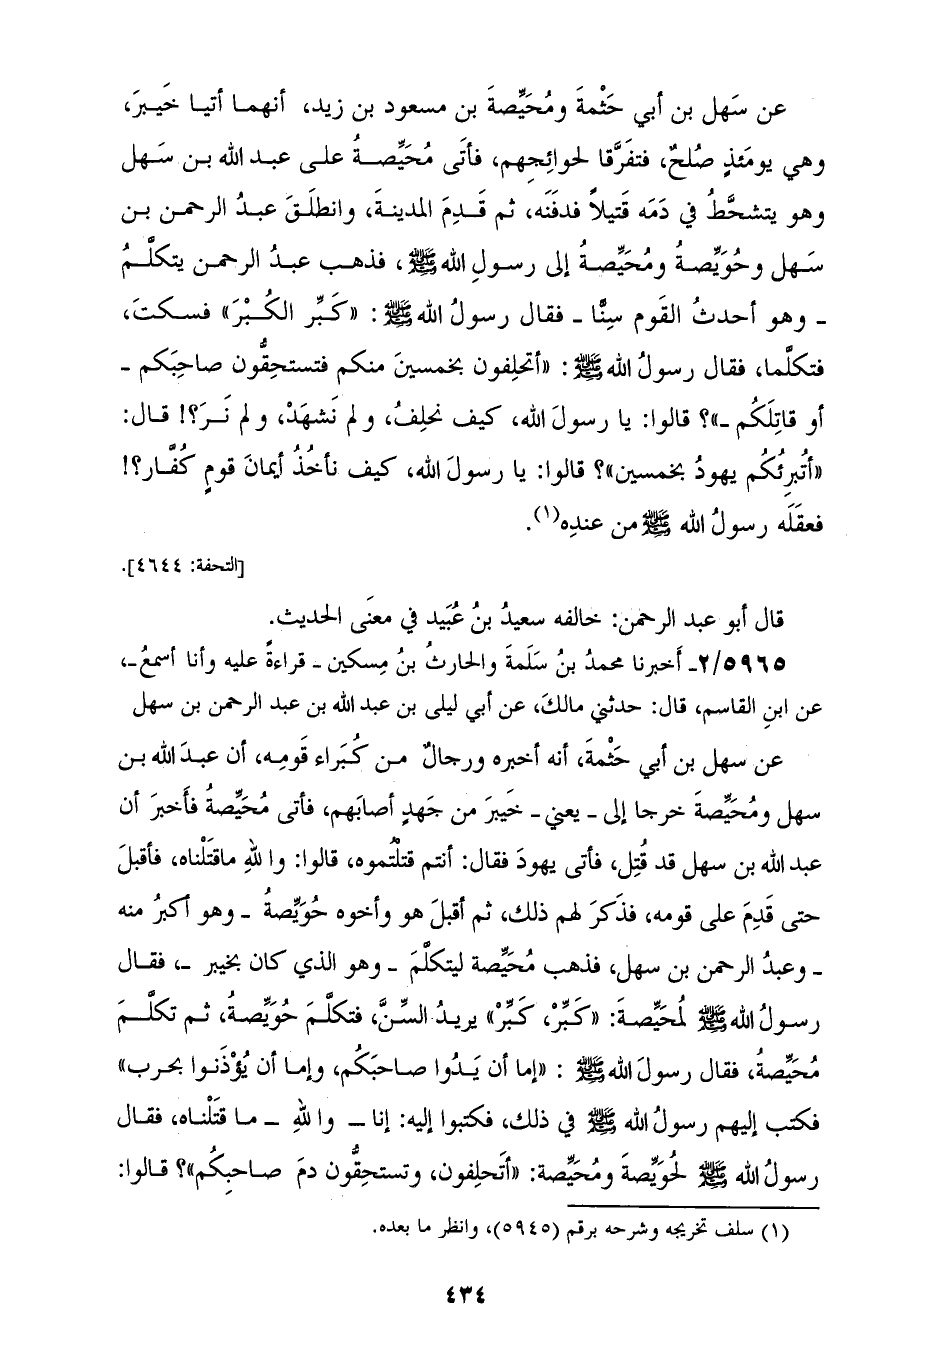 عن سَهل بن أبي حَثْمةَ ومُحَيِّصةَ بن مسعود بن زيد، أنهما أتيا خَيبرَ،
وهي يومَئذٍ صُلحٌ، فتفرَّقا لحوائِجهم، فأتَى مُحَيِّصـةُ على عبد الله بن سَهل
وهو يتشحَّطُ في دَمَه قَتيلاً فدفَنَه، ثم قَدِمَ المدينةَ، وانطلَقَ عبدُ الرحمن بن
سَهل وحُوَيِّصةُ ومُحَيِّصةُ إلى رسولِ الله ﷺ، فذهب عبدُ الرحمن يتكلَّمُ
ـ وهو أحدثُ القَوم سِنًّا ـ فقال رسولُ الله ﷺ: «كَبِّر الكُبْرَ» فسكتَ،
فتكلَّما، فقال رسولُ الله ﷺ: «أتحلِفون بخمسينَ منكم فتستحِقُّون صاحِبَكم ـ
أو قاتِلَكُم ـ»؟ قالوا: يا رسولَ الله، كيف نحلِفُ، ولم نَشهَدْ، ولم نَرَ؟! قال:
«أتُبرِئُكُم يهودُ بخمسين»؟ قالوا: يا رسولَ الله، كيف نأخُذُ أيمانَ قومٍ كُفَّار؟!
فعقَلَه رسولُ الله ﷺ من عندِه(١).
[التحفة: ٤٦٤٤].
قال أبو عبد الرحمن: خالفه سعيدُ بنُ عُبَيد في معنَى الحديث.
٢/٥٩٦٥ـ أَخبرنا محمدُ بنُ سَلَمةَ والحارثُ بنُ مِسكين ـ قراءةً عليه وأنا أسمعُ ـ،
عن ابنِ القاسم، قال: حدثني مالكَ، عن أبي ليلى بن عبد الله بن عبد الرحمن بن سهل
عن سهل بن أبي حَثْمةَ، أنه أخبره ورجالٌ من كُبَراء قَومِه، أن عبدَ الله بن
سهل ومُحَيِّصةَ خرجا إلى ـ يعني ـ خَيبرَ من جَهدٍ أصابَهم، فأتى مُحَيِّصةُ فأَخبرَ أن
عبد الله بن سهل قد قُتِل، فأتى يهودَ فقال: أنتم قتلتُموه، قالوا: واللهِ ماقتَلْناه، فأقبلَ
حتى قَدِمَ على قومه، فذكَرَ لهم ذلك، ثم أقبلَ هو وأخوه حُوَيِّصةُ ـ وهو أكبرُ منه
ـ وعبدُ الرحمن بن سهل، فذهب مُحَيِّصة ليتكلَّمَ ـ وهو الذي كان بخيبر ـ، فقال
رسولُ الله ﷺ لمُحَيِّصةَ: «كَبِّرْ، كَبِّرْ» يريدُ السِّنَّ، فتكلَّمَ حُوَيِّصةُ، ثم تكلَّمَ
مُحَيِّصةُ، فقال رسولَ الله ﷺ: «إما أن يَدُوا صاحبَكُم، وإما أن يُؤْذَنوا بحرب»
فكتب إليهم رسولُ الله ﷺ في ذلك، فكتبوا إليه: إنا ـ واللهِ ـ ما قتَلْناه، فقال
رسولُ الله ﷺ لحُوَيِّصةَ ومُحَيِّصة: «أتَحلِفون، وتستحِقُّون دمَ صاحبِكُم»؟ قالوا:
(١) سلف تخريجه وشرحه برقم (٥٩٤٥)، وانظر ما بعده.
٤٣٤